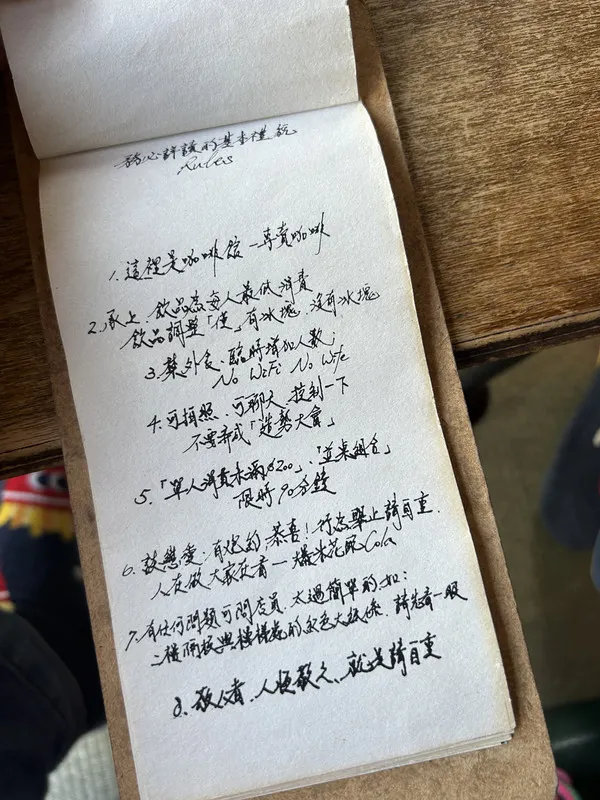 Rules
1. 這裡是咖啡館 一 專賣咖啡
2. 承上 飲品為每人最低消費
飲品調整「僅」有冰塊.沒有冰塊
3. 禁外食、臨時增加人數;
No WiFi No Wife
4. 可拍照.可聊天.控制一下
不要弄成「造勢大會」
5.「單人消費未滿$200」、「並桌組合」
限時90分鐘
6. 談戀愛;有 恭喜!行為舉止請自重.
人在做大家在看一 爆米花配Cola
7. 有任何問題可問店員.太過簡單的如:
請先看一眼
8. 敬人者.人恆敬之、就是請自重